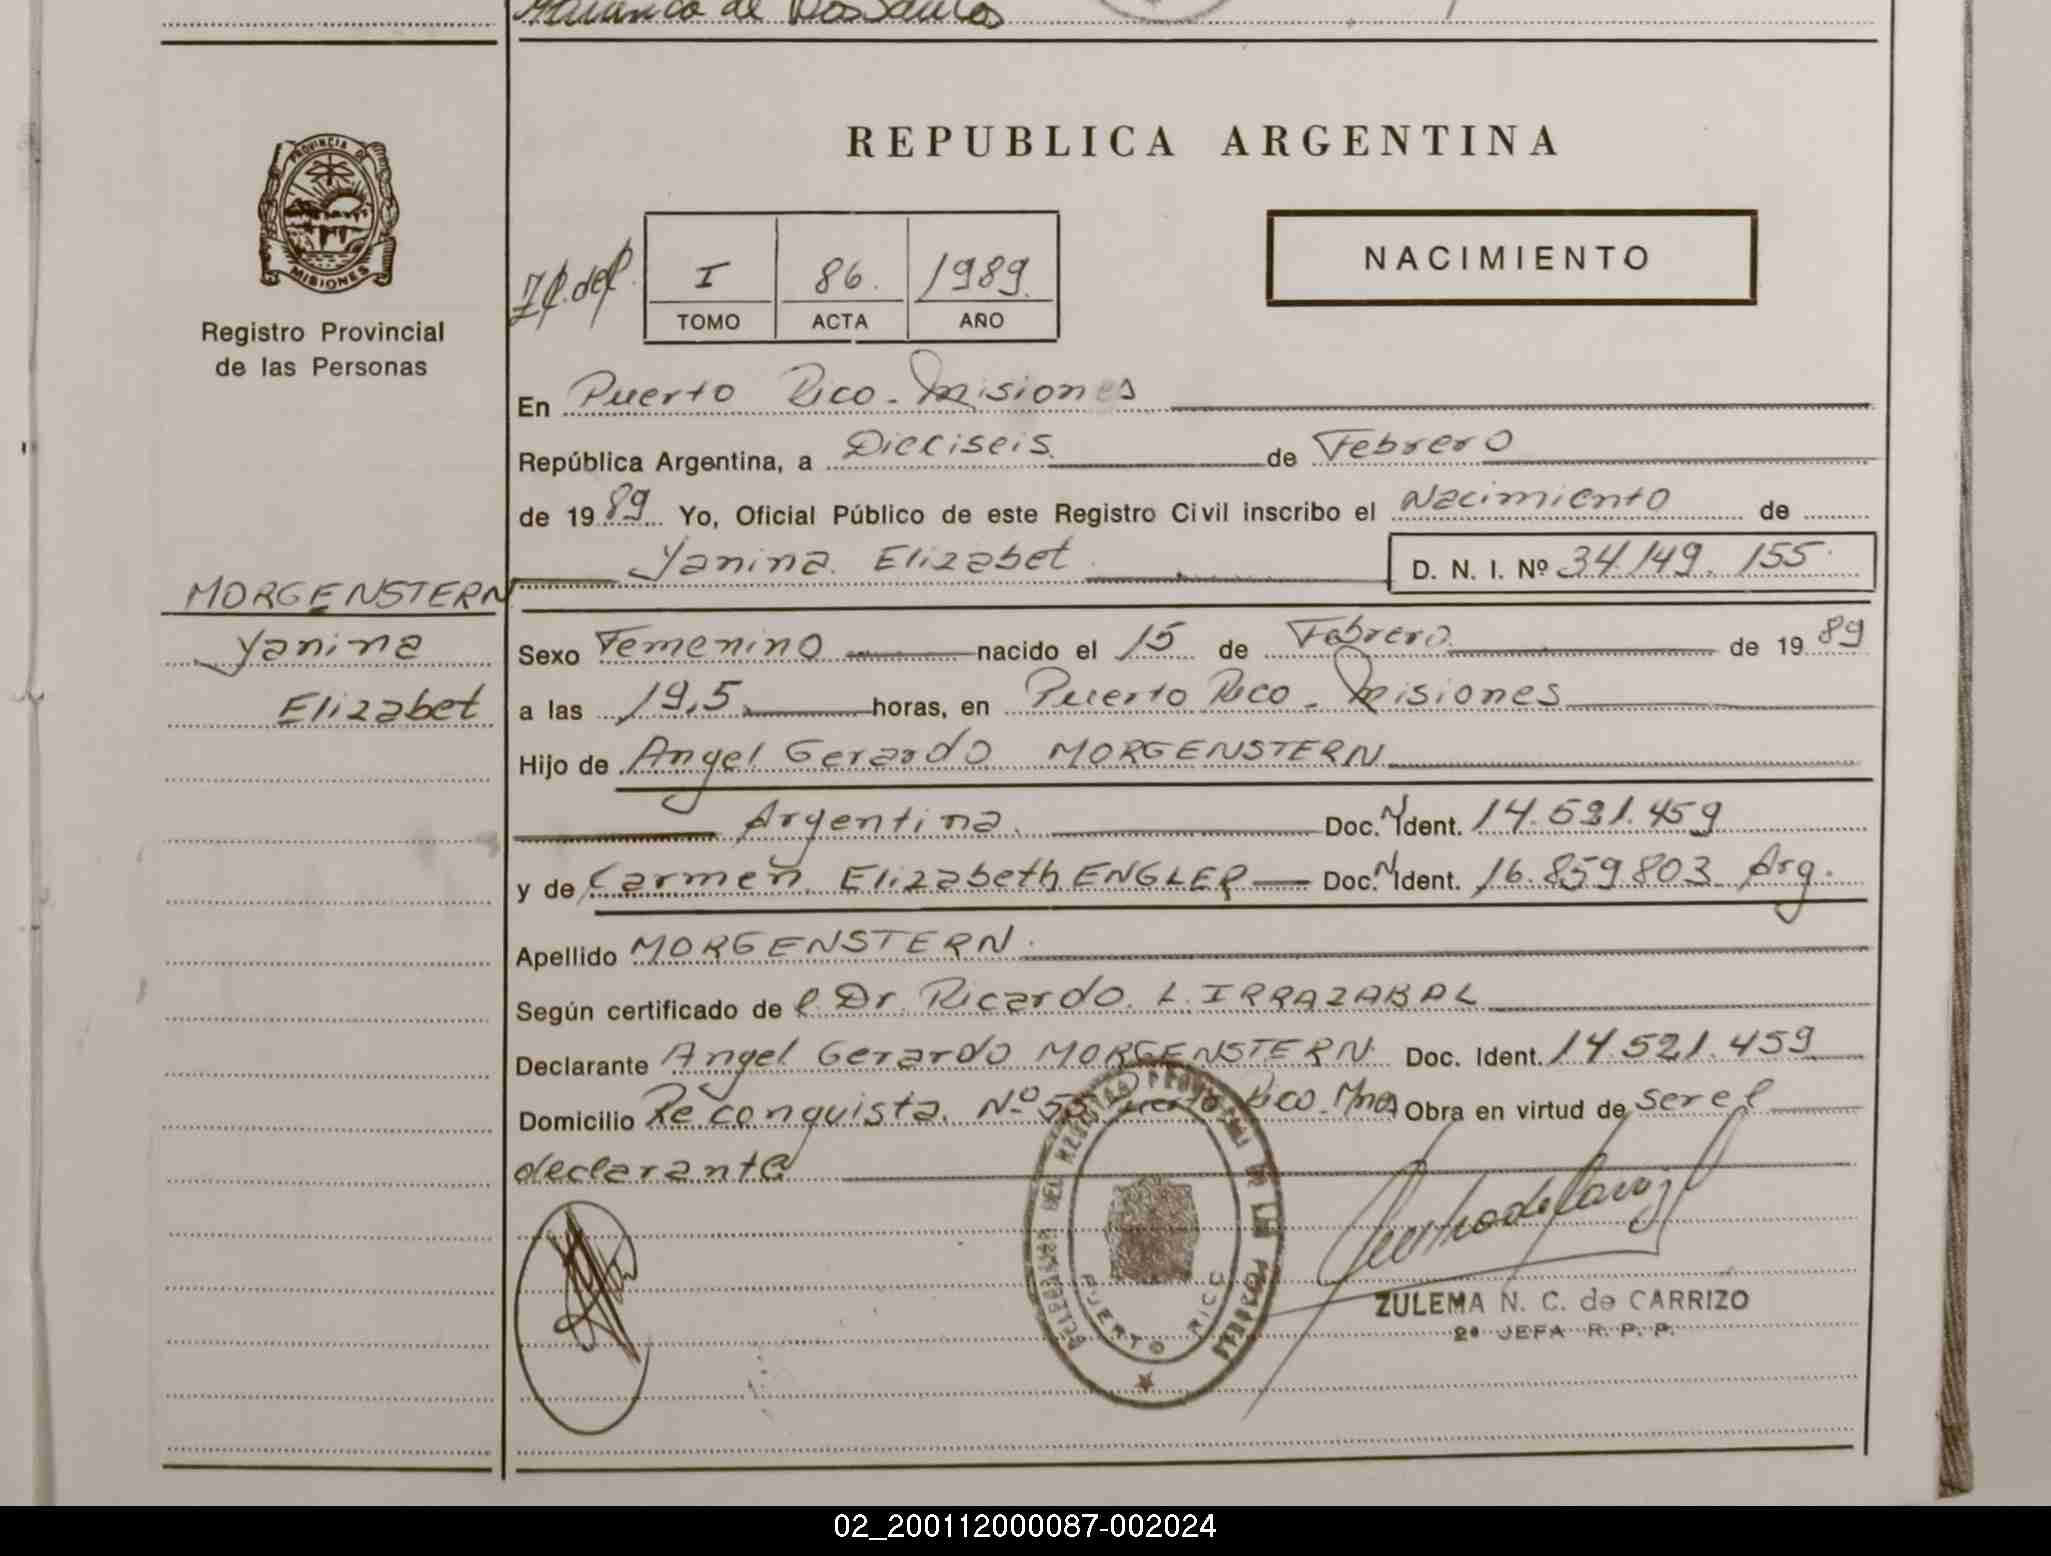 de Dos Santos
REPUBLICA ARGENTINA
PROVINCIA DE
MISIONES
Registro Provincial
de las Personas
I 86. 1989.
TOMO ACTA AÑO
NACIMIENTO
En Puerto Rico - Misiones
República Argentina, a Dieciseis de Febrero
de 1989 Yo, Oficial Público de este Registro Civil inscribo el Nacimiento de
Yanina Elizabet D. N. I. Nº 34.149.155
MORGENSTERN
Yanina
Elizabet
Sexo Femenino nacido el 15 de Febrero de 1989
a las 19,5 horas, en Puerto Rico - Misiones
Hijo de Angel Gerardo MORGENSTERN
Argentina Doc. N Ident. 14.521.459
y de Carmen Elizabeth ENGLER Doc. N Ident. 16.859.803 Arg.
Apellido MORGENSTERN
Según certificado de l Dr. Ricardo L. IRRAZABAL
Declarante Angel Gerardo MORGENSTERN Doc. Ident. 14.521.459
Domicilio Reconquista Nº Puerto Rico Mnes Obra en virtud de ser el
declarante
DELEGACION DEL REGISTRO PROVINCIAL DE LAS PERSONAS
PUERTO RICO
ZULEMA N. C. de CARRIZO
2ª JEFA R. P. P.
02_200112000087-002024